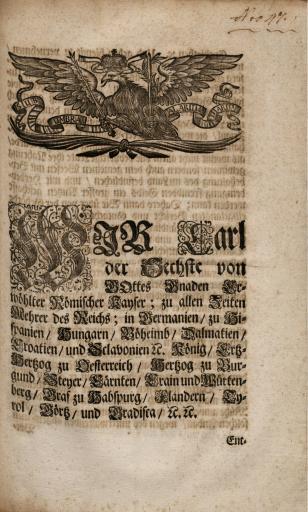 Nro 17.
SUB UMBRA ALARUM TUARUM
WIR Carl
der Sechste von
GOttes Gnaden Er-
wöhlter Römischer Kayser; zu allen Zeiten
Mehrer des Reichs; in Germanien/ zu Hi-
spanien/ Hungarn/ Böheimb/ Dalmatien/
Croatien/ und Sclavonien ꝛc. König/ Ertz-
Hertzog zu Oesterreich/ Hertzog zu Bur-
gund/ Steyer/ Cärnten/ Crain und Würten-
berg/ Graf zu Habspurg/ Flandern/ Ty-
rol/ Görtz/ und Gradisca/ ꝛc. ꝛc.
Ent-